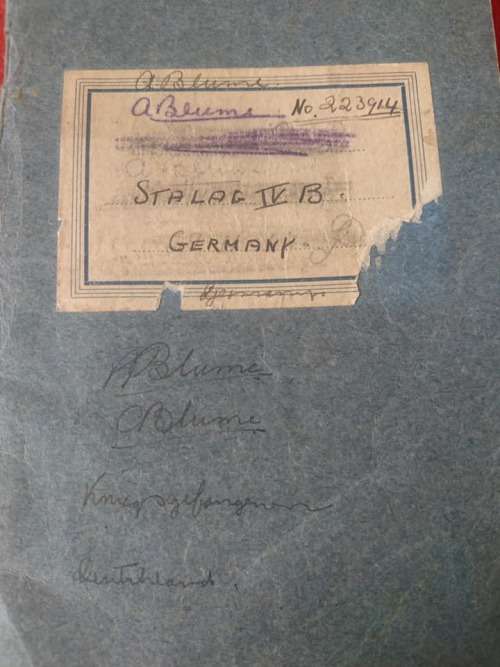 A Blume.
A Blume No. 223914
STALAG IV B.
GERMANY.
A Blume
A Blume
Kriegsgefangenen
Deutschland.